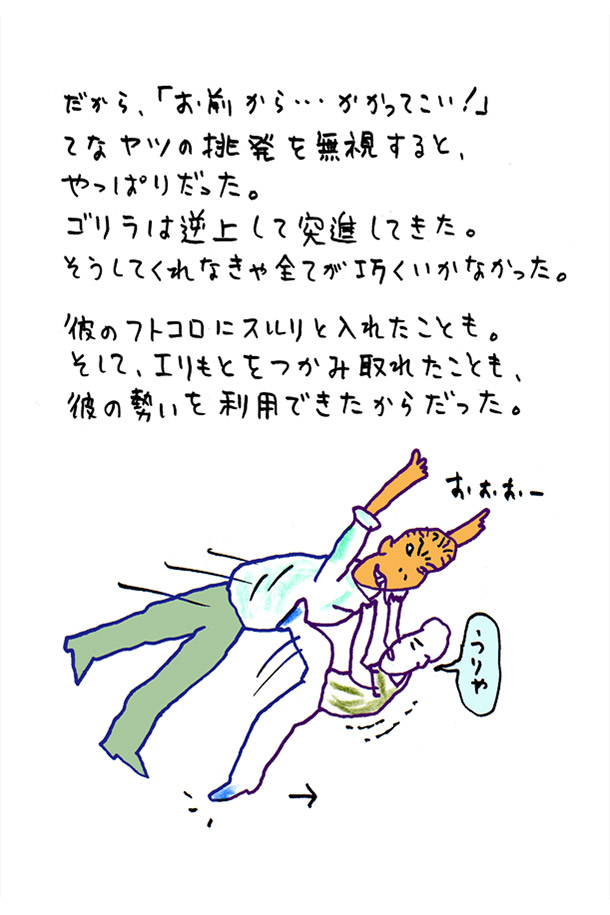 だから、「お前から…かかってこい！」
てなヤツの挑発を無視すると、
やっぱりだった。
ゴリラは逆上して突進してきた。
そうしてくれなきゃ全てが巧くいかなかった。
彼のフトコロにスルリと入れたことも。
そして、エリもとをつかみ取れたことも、
彼の勢いを利用できたからだった。
おおおー
うりゃ